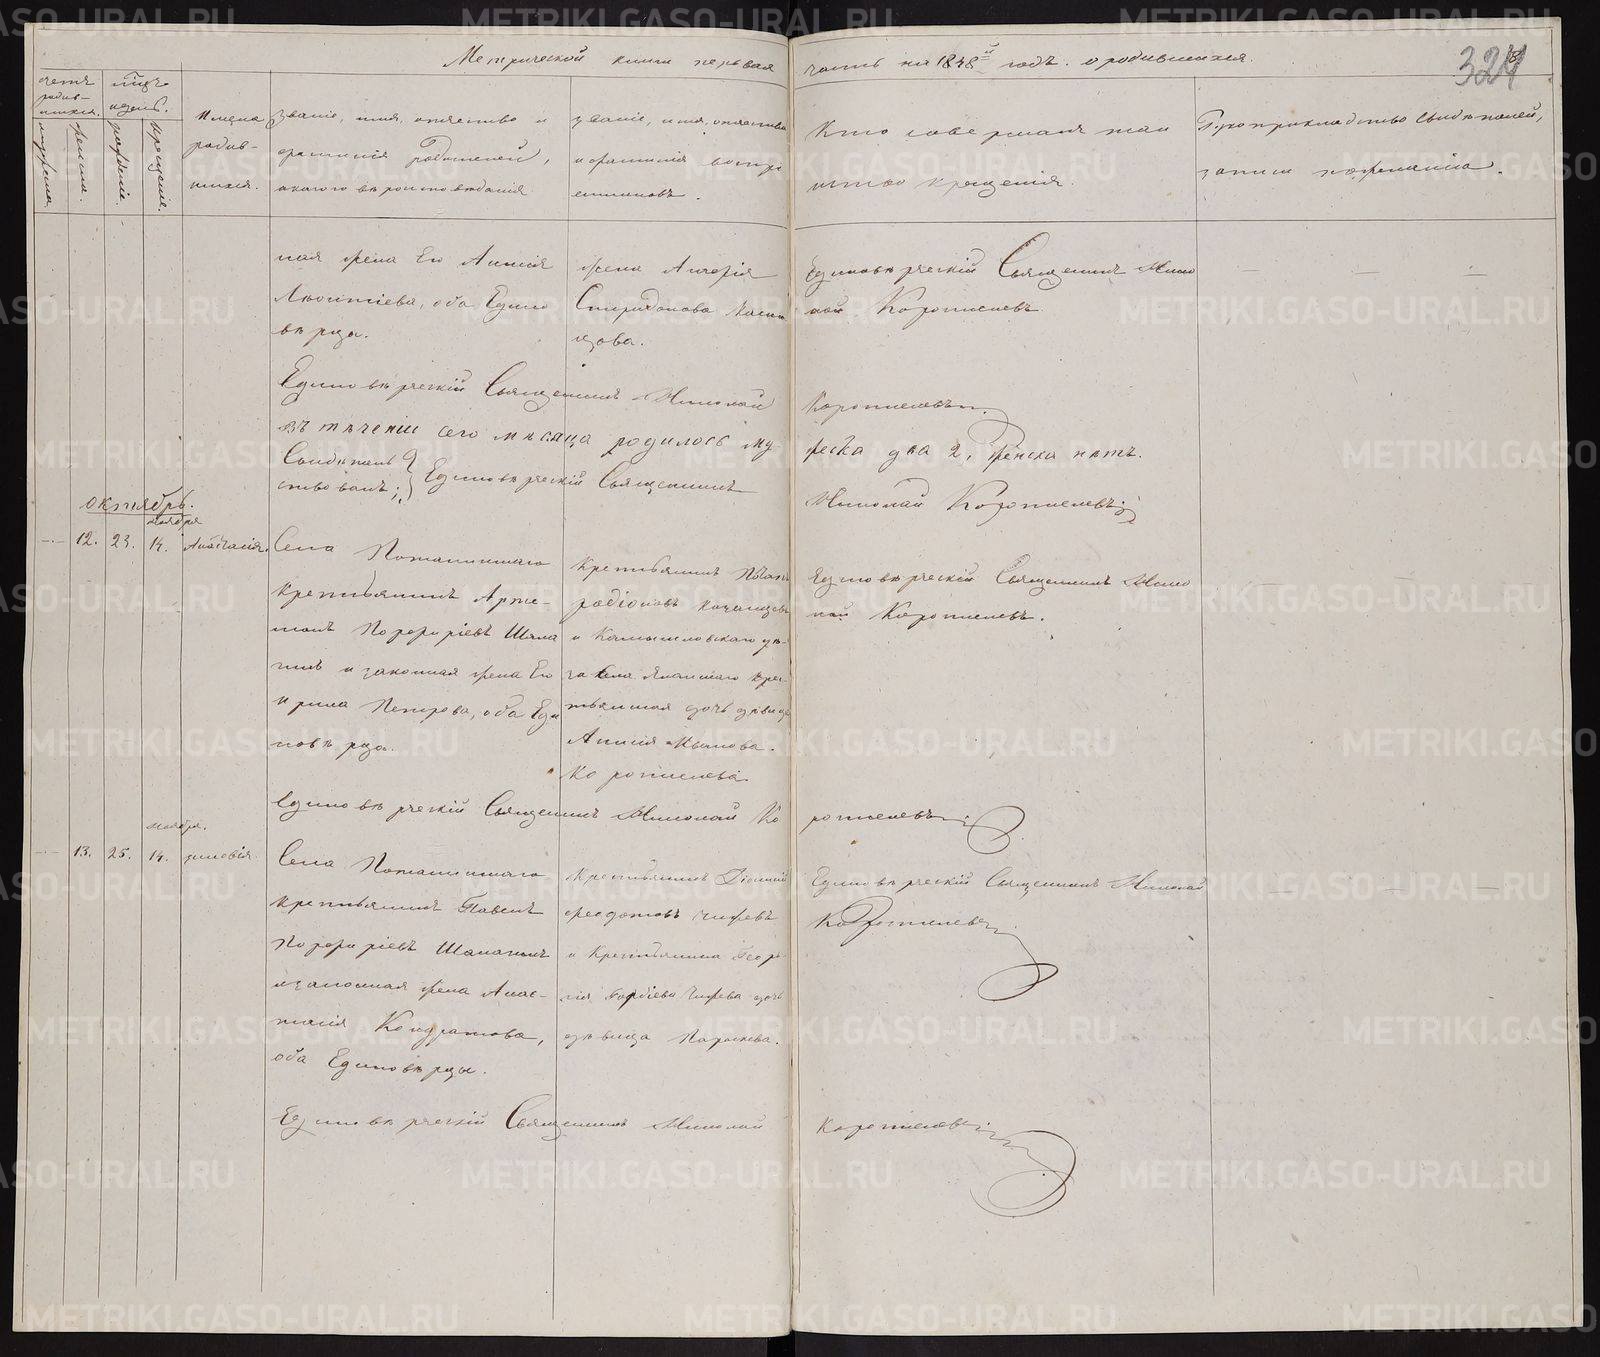 Метрической книги первая часть на 1848й годъ. о родившихся.
324
счетъ родив-шихся.
мужеска
женска.
мѣсяцъ и день.
рожденія.
крещенія.
Имена родив-шихся.
званіе, имя, отчество и
фамилія родителей,
и какого вѣроисповѣданія
званіе, имя, отчество
и фамилія воспрі
емниковъ.
Кто совершалъ таи
нство крещенія.
Рукоприкладство свидѣтелей,
записи по желанію.
ная жена Его Анисія
Леонтіева, оба Едино
вѣрцы.
жена
Спиридонова
цова.
Единовѣрческій Священникъ Нико
лай Коротелевъ
Единовѣрческій Священникъ Николай Коротелевъ
Въ теченіи сего мѣсяца родилось му жеска два 2, Женска нѣтъ.
Свидѣтель
ствовалъ; Единовѣрческій Священникъ Николай Коротелевъ
Октябрь.
ноября
12. 23. 14. Анастасія.
Села Поташинскаго
крестьянинъ Арте-
монъ Порфиріевъ Шала
гинъ и законная жена Его
Ирина Петрова, оба Еди
новѣрцы.
крестьянинъ
родіоновъ
и Камышловскаго уѣ-
зда села крес-
тьянская дочь дѣвица
Анисія Иванова.
Коротелева
Единовѣрческій Священникъ Нико
лай Коротелевъ.
Единовѣрческій Священникъ Николай Ко
ротелевъ
ноября.
13. 25. 14. зиновія
Села Поташинскаго
крестьянинъ Павелъ
Порфиріевъ Шалагинъ
и законная жена Анас-
тасія Кондратова,
оба Единовѣрцы.
крестьянинъ Діонисій
феодотовъ
и крестьянина Геор
гія дочь
дѣвица
Единовѣрческій Священникъ Николай
Коротелевъ
Единовѣрческій Священникъ Николай Коротелевъ
METRIKI.GASO-URAL.RU